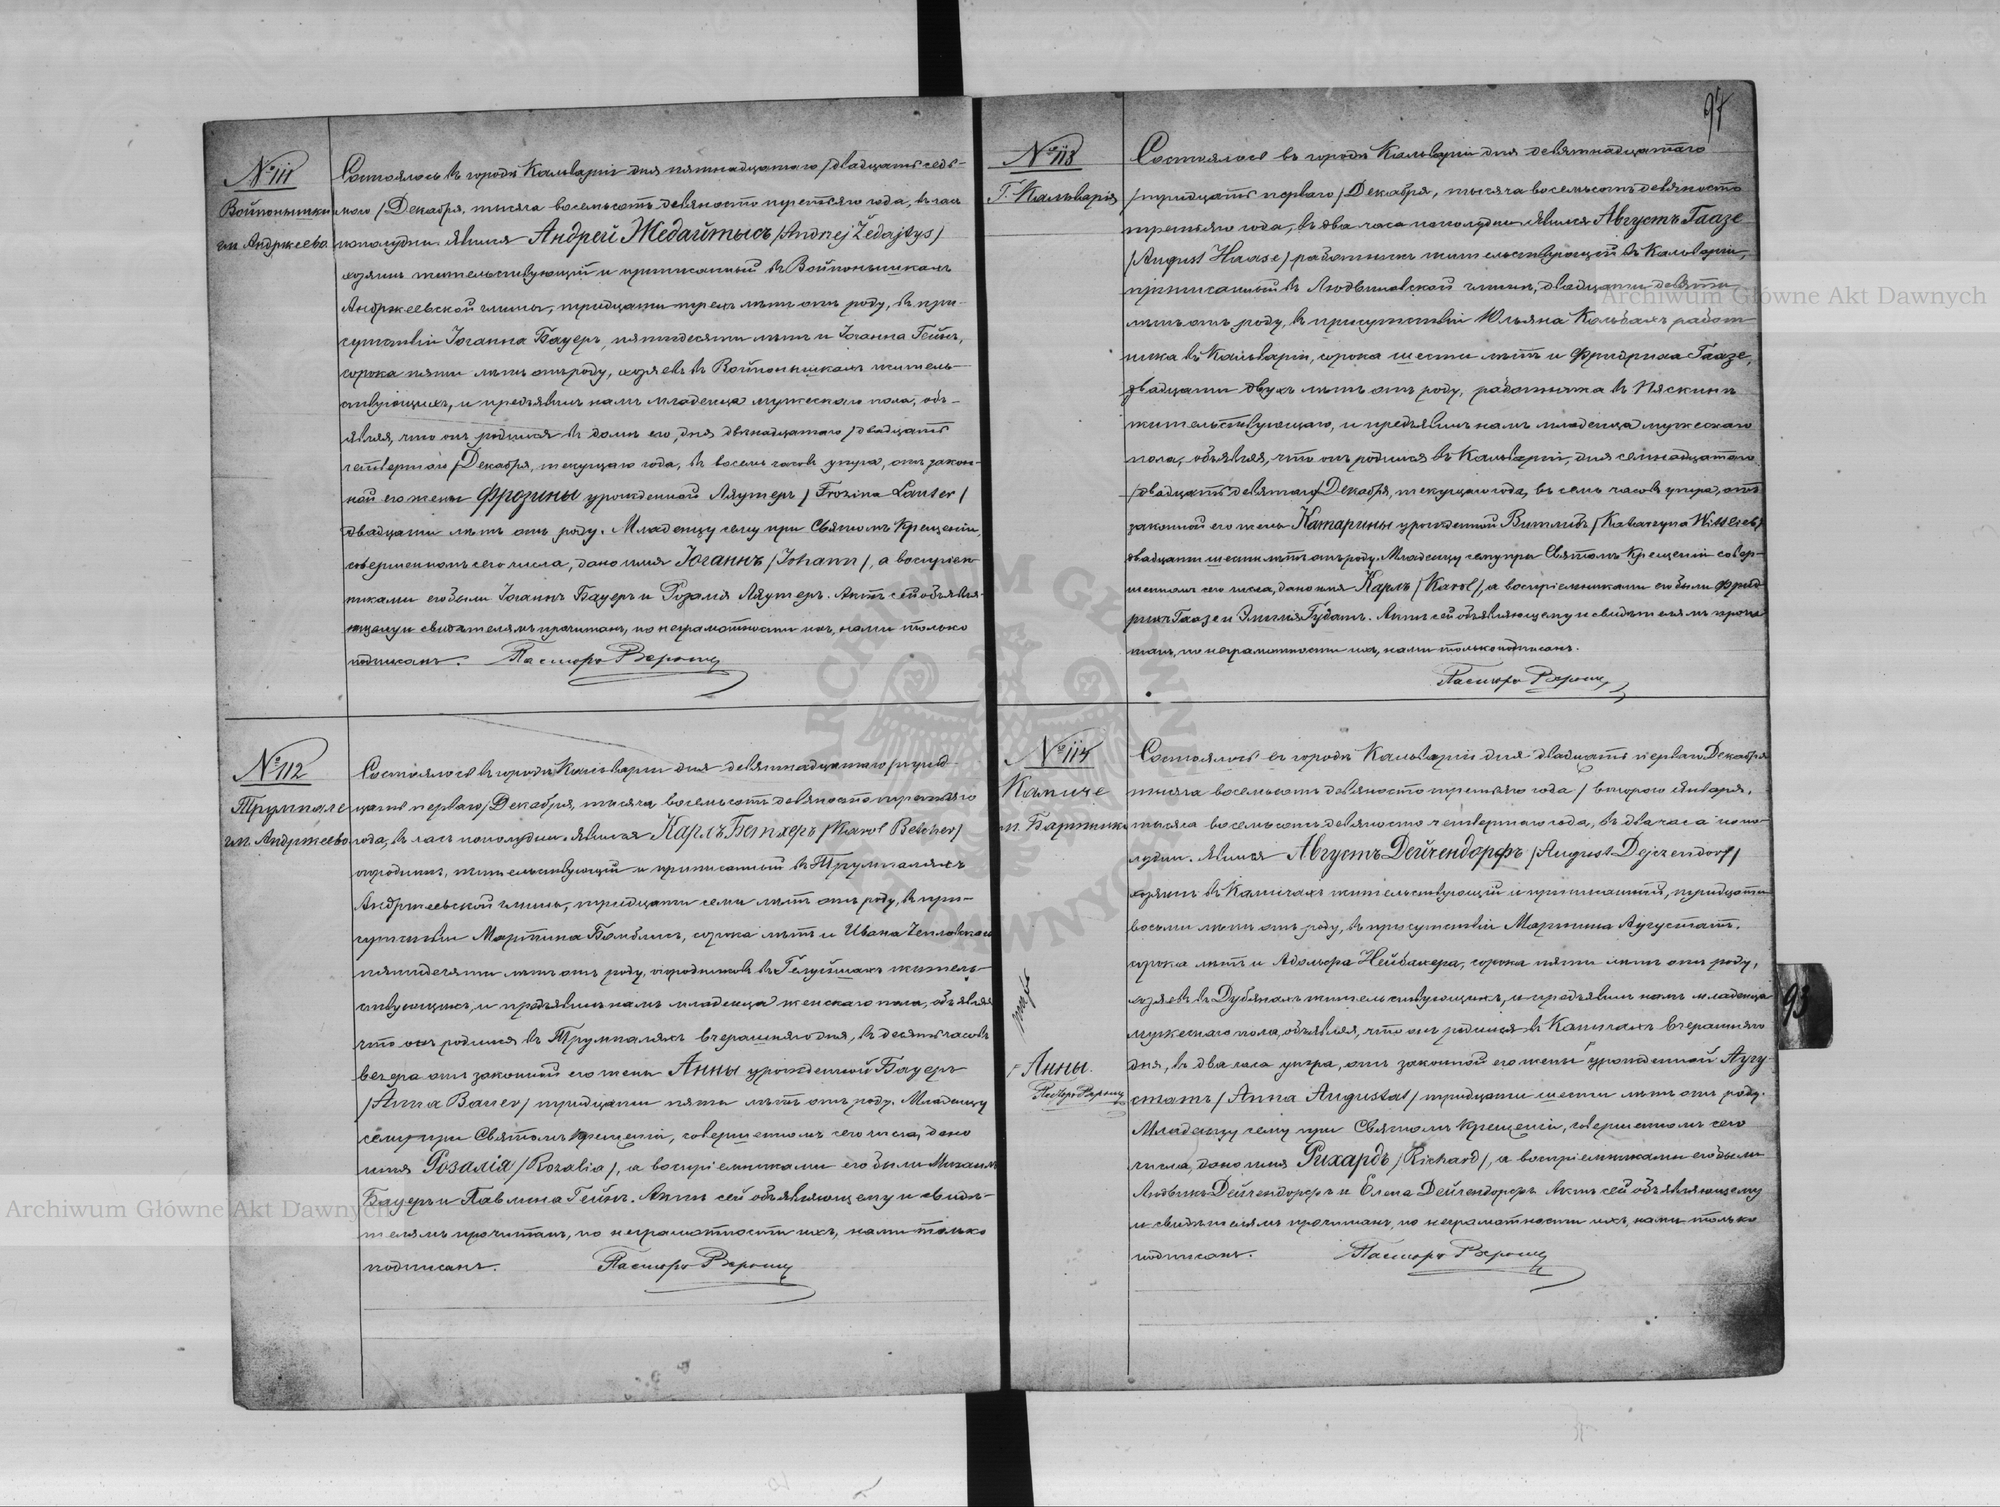 № 111
Войпонышки
гм. Андржеево
Состоялось въ городѣ Кальваріи дня пятнадцатаго /двадцать седь-
маго/ Декабря, тысяча восемьсотъ девяносто третьяго года, въ часъ
пополудни. Явился Андрей Жедайтысъ /Andrzej Żedajtys/
хозяинъ жительствующій и приписанный въ Войпонышкахъ
Андржеевской гмины, тридцати трехъ лѣтъ отъ роду, въ при-
сутствіи Іоганна Бауеръ, пятидесяти лѣтъ и Іоганна Гейнъ,
сорока пяти лѣтъ отъ роду, хозяевъ въ Войпонышкахъ житель-
ствующихъ, и предъявилъ намъ младенца мужескаго пола, объ-
являя, что онъ родился въ домѣ его, дня двѣнадцатаго /двадцать
четвертаго/ Декабря, текущаго года, въ восемь часовъ утра, отъ закон-
ной его жены Фрозины урожденной Ляутеръ /Frozina Lauter/
двадцати лѣтъ отъ роду. Младенцу сему при Святомъ Крещеніи,
совершенномъ сего числа, дано имя Іоганнъ /Johann/, а воспріем-
никами его были Іоганнъ Бауеръ и Розалія Ляутеръ. Актъ сей объявля-
ющему и свидѣтелямъ прочитанъ, по неграмотности ихъ, нами только
подписанъ. Пасторъ
№ 112
Трумпале
гм. Андржеево
Состоялось въ городѣ Кальваріи дня девятнадцатаго /трид-
цать перваго/ Декабря, тысяча восемьсотъ девяносто третьяго
года, въ часъ пополудни. Явился Карлъ Бетхеръ /Karol Betcher/
огородникъ, жительствующій и приписанный въ Трумпаляхъ
Андржеевской гмины, тридцати семи лѣтъ отъ роду, въ при-
сутствіи Мартина Бамблисъ, сорока лѣтъ и Ивана
пятидесяти лѣтъ отъ роду, огородниковъ въ житель-
ствующихъ, и предъявилъ намъ младенца женскаго пола, объявляя
что онъ родился въ Трумпаляхъ вчерашняго дня, въ десять часовъ
вечера отъ законной его жены Анны урожденной Бауеръ
/Anna Bauer/ тридцати пяти лѣтъ отъ роду. Младенцу
сему при Святомъ Крещеніи, совершенномъ сего числа, дано
имя Розалія /Rozalia/, а воспріемниками его были Михаилъ
Бауеръ и Павлина Гейнъ. Актъ сей объявляющему и свидѣ-
телямъ прочитанъ, по неграмотности ихъ, нами только
подписанъ. Пасторъ
97
№ 113
Г. Кальварія
Состоялось въ городѣ Кальваріи дня девятнадцатаго
/тридцать перваго/ Декабря, тысяча восемьсотъ девяносто
третьяго года, въ два часа пополудни. Явился Августъ Гаазе
/August Haase/ работникъ жительствующій въ Кальваріи,
приписанный въ Людвиновской гминѣ, двадцати девяти
лѣтъ отъ роду, въ присутствіи Юльяна Кольбахъ работ-
ника въ Кальваріи, сорока шести лѣтъ и Фридриха Гаазе,
двадцати двухъ лѣтъ отъ роду, работника въ
жительствующаго, и предъявилъ намъ младенца мужескаго
пола, объявляя, что онъ родился въ Кальваріи, дня семнадцатаго
/двадцать девятаго/ Декабря, текущаго года, въ семь часовъ утра, отъ
законной его жены Катарины урожденной Витлибъ /Katarzyna Wittlieb/
двадцати шести лѣтъ отъ роду. Младенцу сему при Святомъ Крещеніи совер-
шенномъ сего числа, дано имя Карлъ /Karol/, а воспріемниками его были Фрид-
рихъ Гаазе и Эмилія Гудатъ. Актъ сей объявляющему и свидѣтелямъ прочи-
танъ, по неграмотности ихъ, нами только подписанъ.
Пасторъ
№ 114
Капице
гм. Бартники
Анны.
Состоялось въ городѣ Кальваріи дня двадцать перваго Декабря
тысяча восемьсотъ девяносто третьяго года / втораго Января,
тысяча восемьсотъ девяносто четвертаго года, въ два часа попо-
лудни. Явился Августъ Дейчендорфъ /August Dejczendorf/
хозяинъ въ Капицахъ жительствующій и приписанный, тридцати
восьми лѣтъ отъ роду, въ присутствіи Мартина Аугустатъ,
сорока лѣтъ и Адольфа Нейбахера, сорока пяти лѣтъ отъ роду,
хозяевъ въ Дубянахъ жительствующихъ, и предъявилъ намъ младенца
мужескаго пола, объявляя, что онъ родился въ Капицахъ вчерашняго
дня, въ два часа утра, отъ законной его жены урожденной Аугу-
статъ /Anna Augustat/ тридцати шести лѣтъ отъ роду.
Младенцу сему при Святомъ Крещеніи, совершенномъ сего
числа, дано имя Рихардъ /Richard/, а воспріемниками его были
Людвикъ Дейчендорфъ и Елена Дейчендорфъ. Актъ сей объявляющему
и свидѣтелямъ прочитанъ, по неграмотности ихъ, нами только
подписанъ. Пасторъ
93
Archiwum Główne Akt Dawnych
Archiwum Główne Akt Dawnych